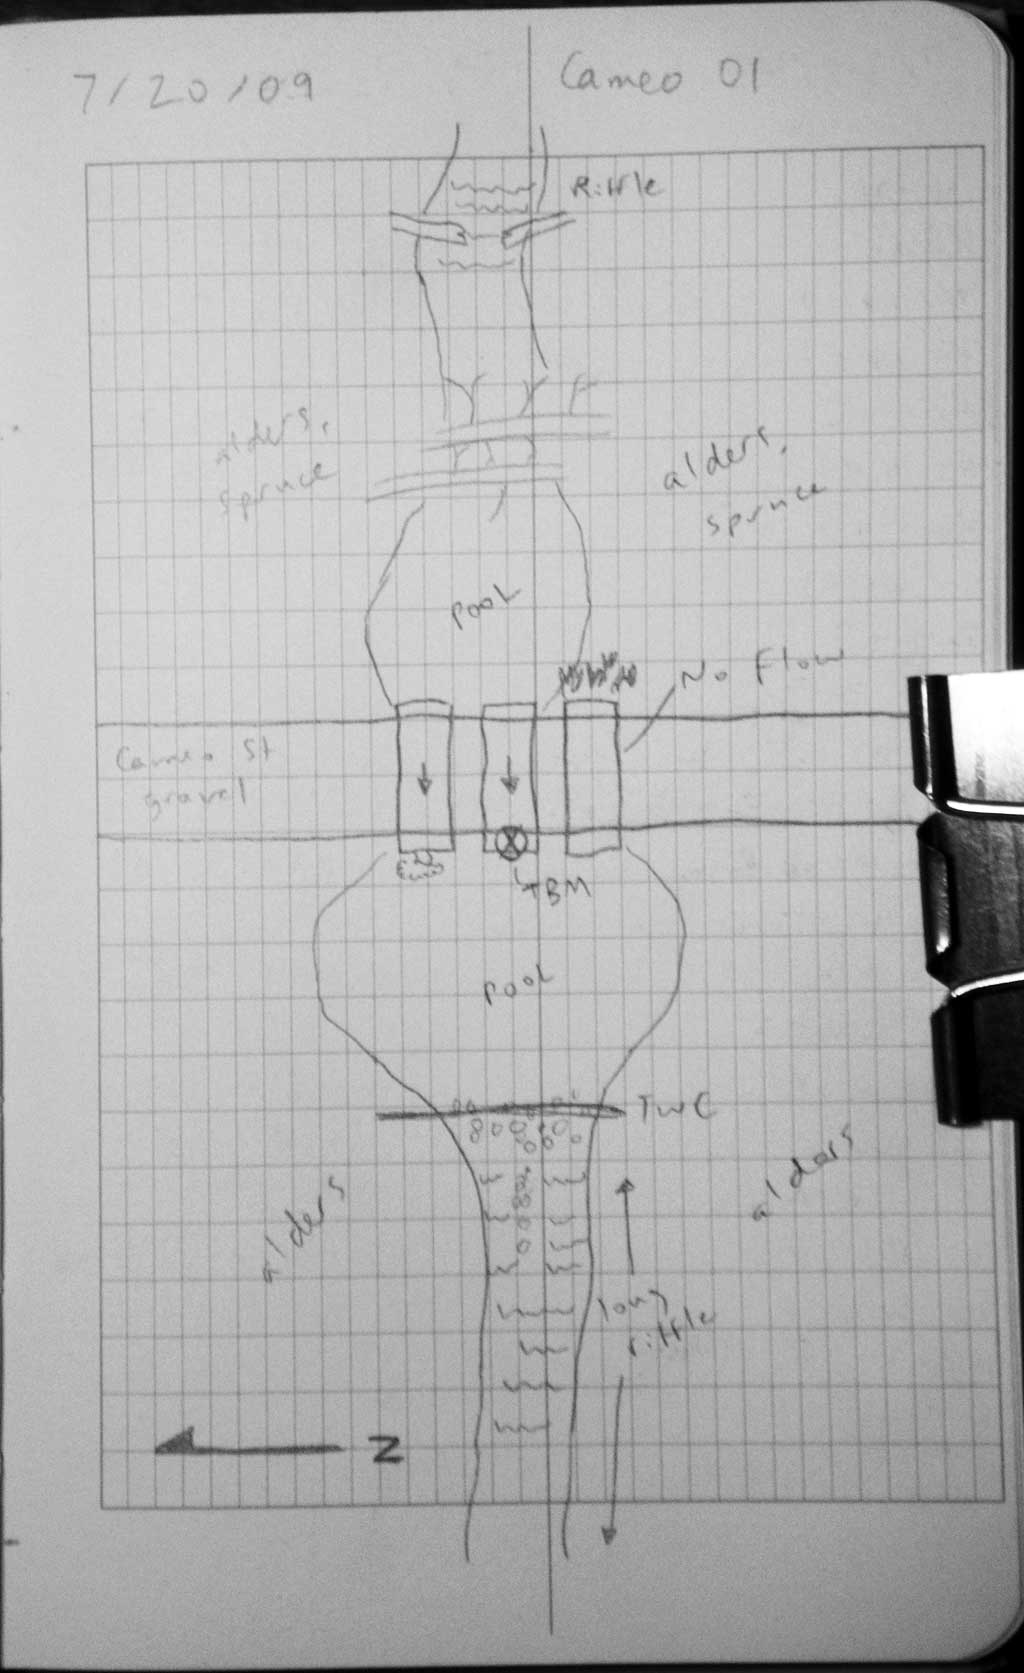 7/20/09
Cameo 01
Riffle
alders,
spruce
alders,
spruce
pool
No Flow
Cameo St
gravel
TBM
pool
TWC
alders
alders
long
riffle
N